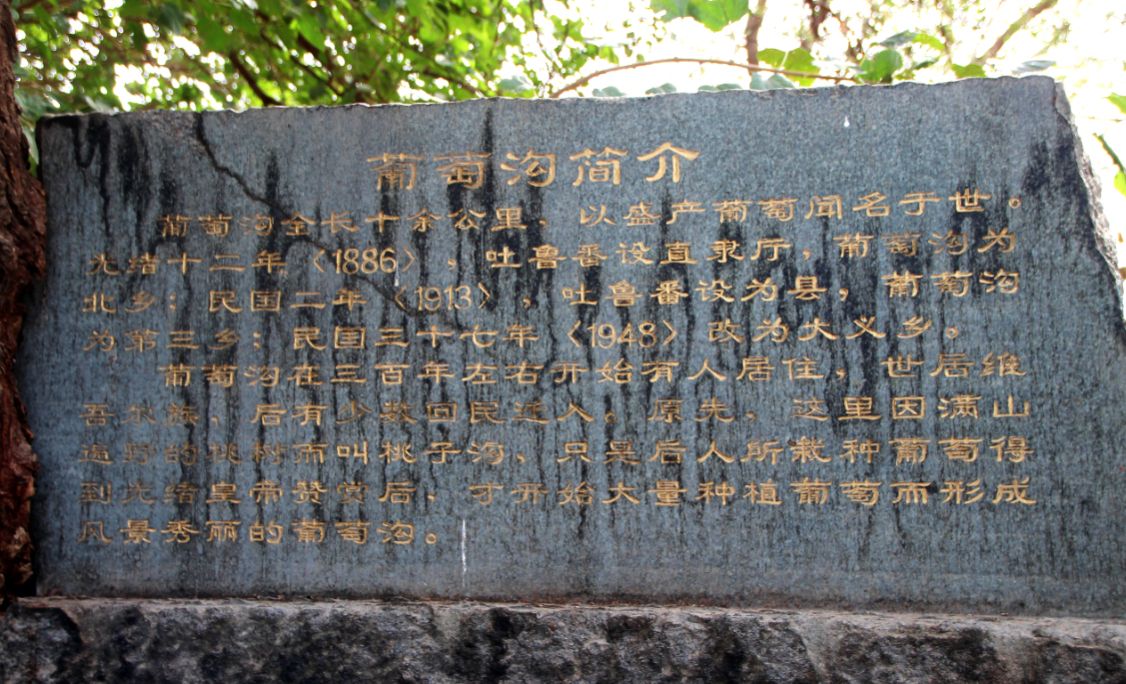 葡萄沟简介
葡萄沟全长十余公里，以盛产葡萄闻名于世。
光绪十二年〈1886〉，吐鲁番设直隶厅，葡萄沟为
北乡；民国二年〈1913〉，吐鲁番设为县，葡萄沟
为第三乡；民国三十七年〈1948〉改为大义乡。
葡萄沟在三百年左右开始有人居住，世居维
吾尔族，后有少数回民迁入。原先，这里因满山
遍野的桃树而叫桃子沟，只是后人所栽种葡萄得
到光绪皇帝赞赏后，才开始大量种植葡萄而形成
风景秀丽的葡萄沟。